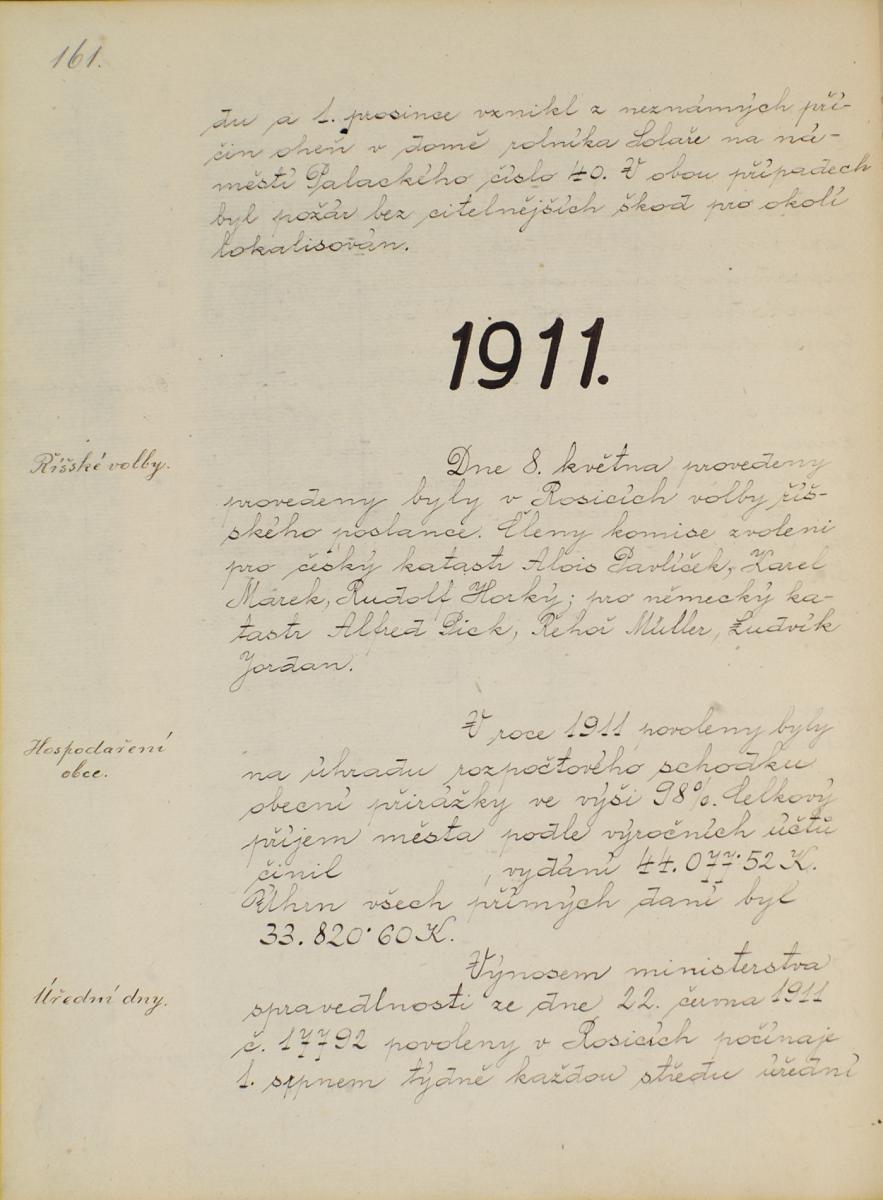 161.
du a 1. prosince vznikl z neznámých pří-
čin oheň v domě rolníka Lolaře na ná-
městí Palackého číslo 40. V obou případech
byl požár bez citelnějších škod pro okolí
lokalisován.
1911.
Říšské volby.
Dne 8. května provedeny
provedeny byly v Rosicích volby říš-
ského poslance. Členy komise zvoleni
pro český katastr Alois Pavlíček, Karel
Márek, Rudolf Horký; pro německý ka-
tastr Alfred Pick, Řehoř Müller, Ludvík
Jordan.
Hospodaření
obce.
V roce 1911 povoleny byly
na úhradu rozpočtového schodku
obecní přirážky ve výši 98%. Celkový
příjem města podle výročních účtů
činil , vydání 44.077·52 K.
Úhrn všech přímých daní byl
33.820·60 K.
Úřední dny.
Výnosem ministerstva
spravedlnosti ze dne 22. června 1911
č. 17792 povoleny v Rosicích počínaje
1. srpnem týdně každou středu úřední